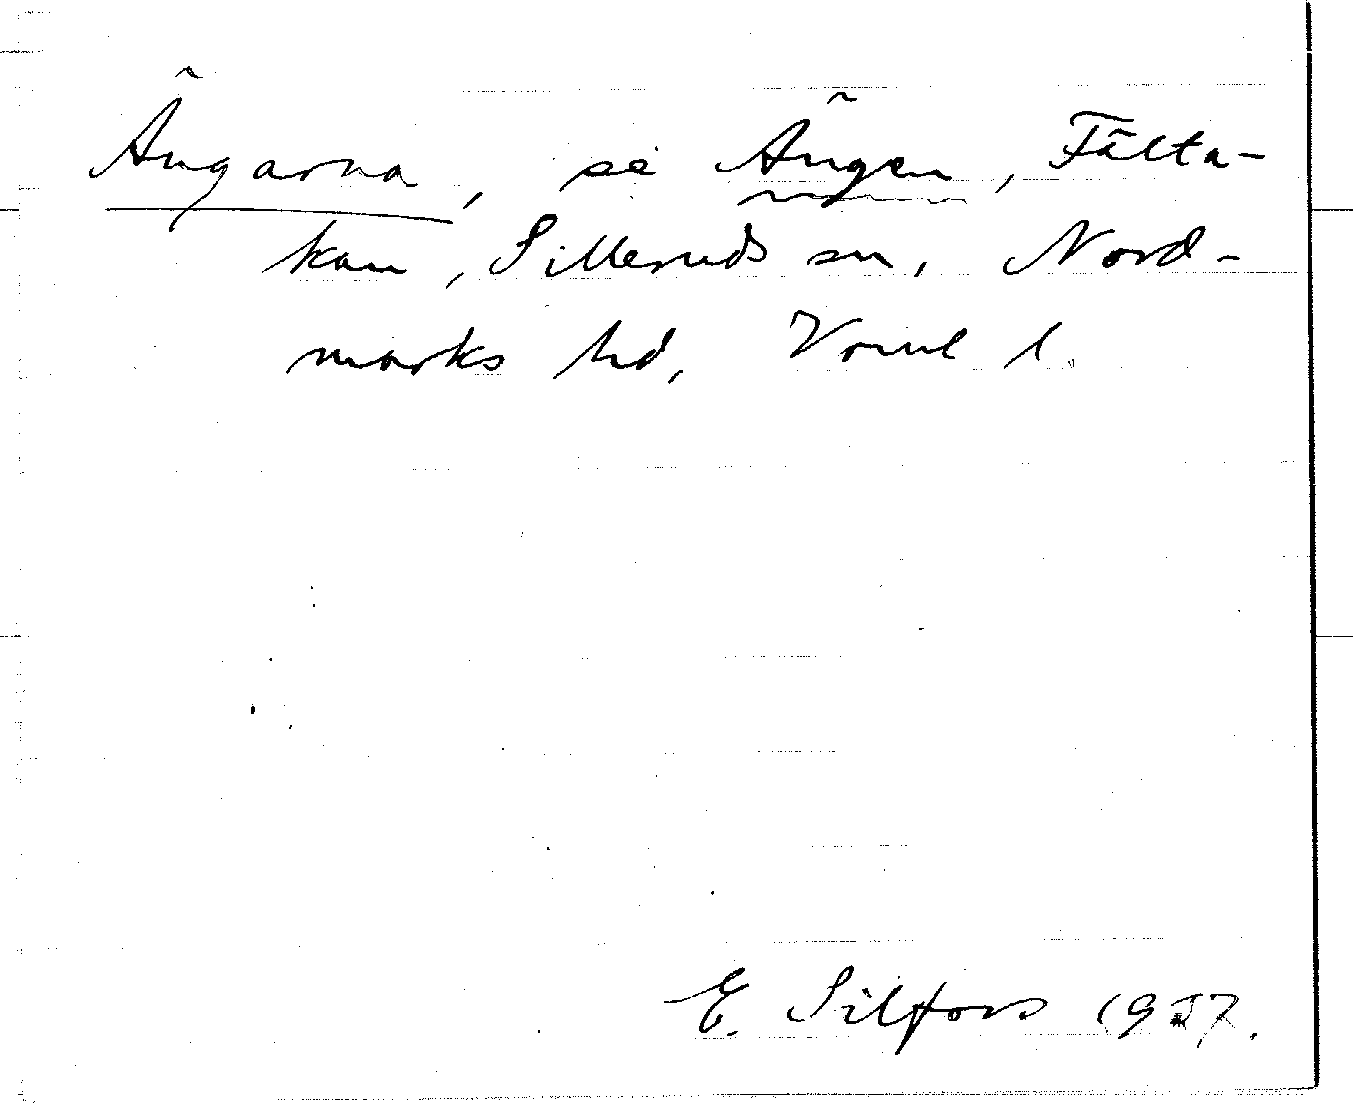 Ängarna, se Ängen, Fälta-
kan, Silleruds sn, Nord-
marks hd, Vrml l.
E. Silfors